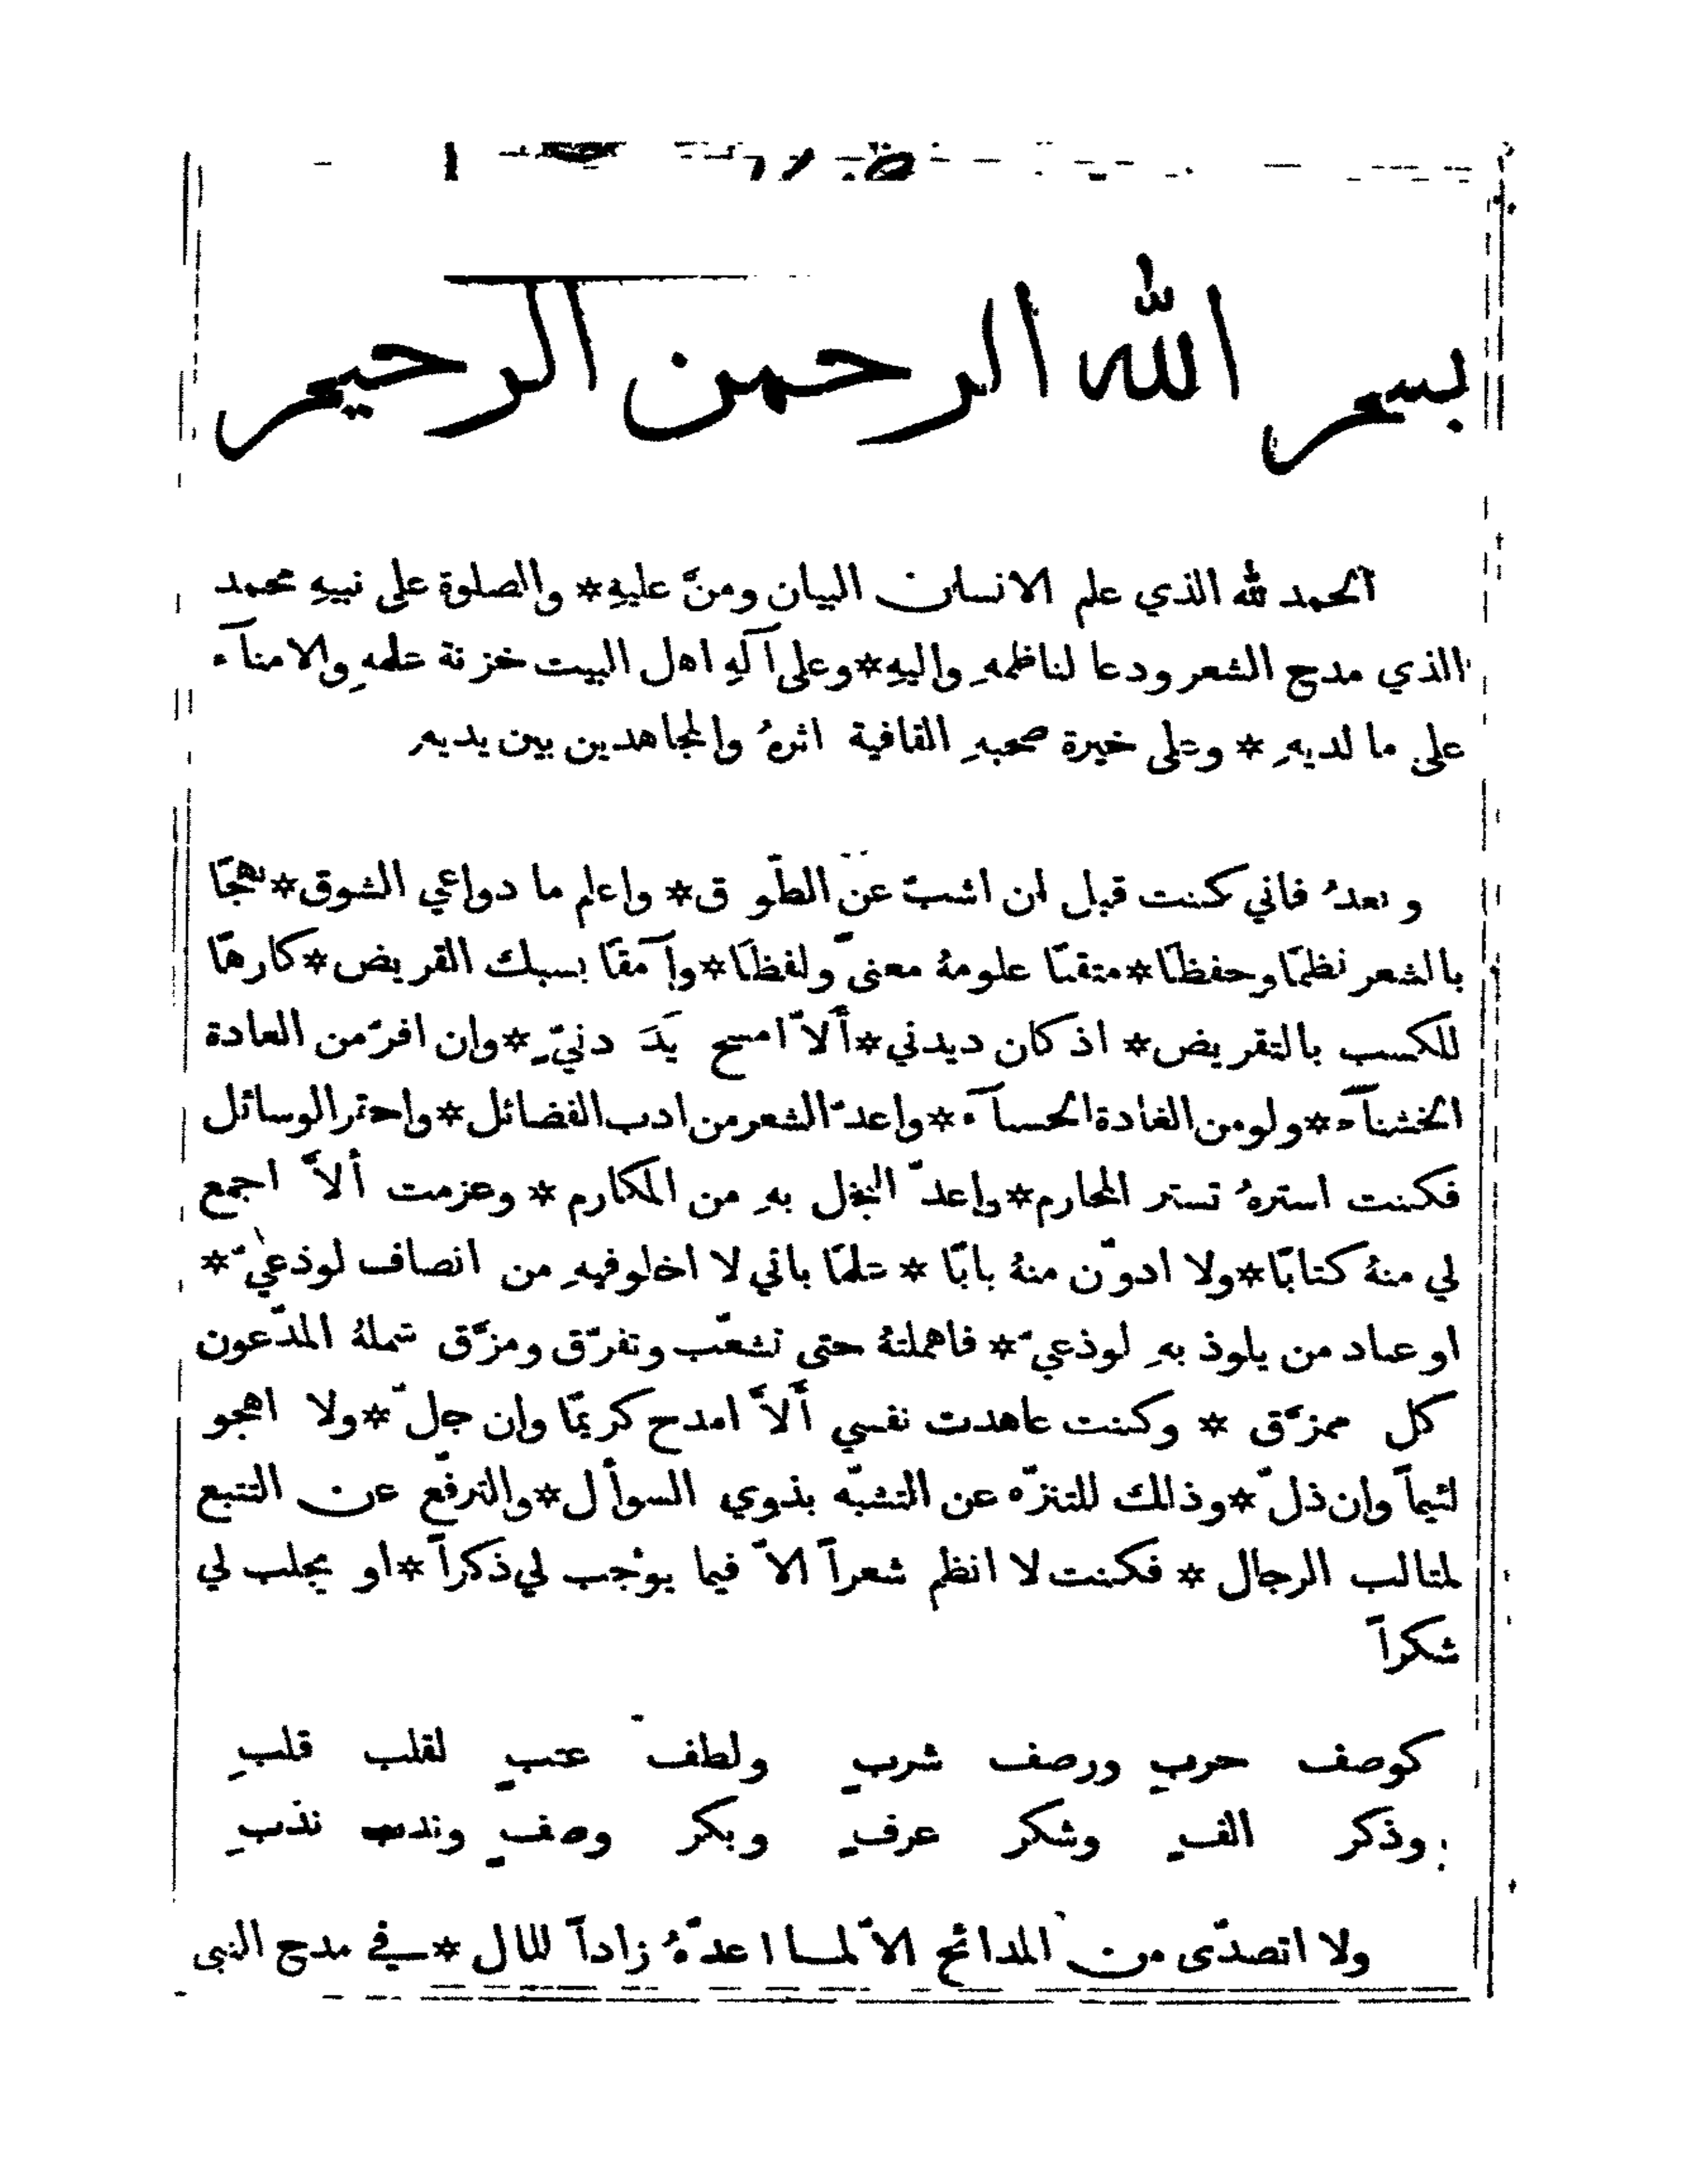 بسم الله الرحمن الرحيم
الحمد لله الذي علم الانسان البيان ومنَّ عليهِ * والصلوة على نبيهِ محمد
الذي مدح الشعر ودعا لناظمهِ واليهِ * وعلى آلهِ اهل البيت خزنة علمهِ والامنآء
على ما لديهِ * وعلى خيرة صحبهِ القافية اثرهُ والمجاهدين بين يديهِ
وبعدُ فاني كنت قبل ان اشبّ عن الطّوق * واعلم ما دواعي الشوق * لهجًا
بالشعر نظمًا وحفظًا * متقنًا علومهُ معنىً ولفظًا * وامقًا بسبك القريض * كارهًا
للكسب بالتقريض * اذ كان ديدني * ألاّ امسح يَدَ دنيّ * وان افرّ من العادة
الخشنآء * ولو من الغادة الحسنآء * واعدّ الشعر من ادب الفضائل * واحقر الوسائل
فكنت استرهُ تستر المحارم * واعدّ البخل بهِ من المكارم * وعزمت ألاَّ اجمع
لي منهُ كتابًا * ولا ادوّن منهُ بابًا * علمًا باني لا اخلو فيهِ من انصاف لوذعيّ *
او عناد من يلوذ بهِ لوذعيّ * فاهملتهُ حتى تشعّب وتفرّق ومزَّق شملهُ المدّعون
كل ممزَّق * وكنت عاهدت نفسي ألاَّ امدح كريمًا وان جلّ * ولا اهجو
لئيماً وان ذلّ * وذالك للتنزّه عن التشبّه بذوي السوأل * والترفّع عن التتبع
لمثالب الرجال * فكنت لا انظم شعراً الاّ فيما يوْجب لي ذكراً * او يجلب لي
شكراً
كوصف حربٍ ورصف شربٍ ولطف عتبٍ لقلب قلبِ
وذكر الفٍ وشكر عرفٍ وبكر وصفٍ وندب ندبِ
ولا اتصدّى من المدائح الاّ لما اعدّهُ زاداً للمال * في مدح النبي